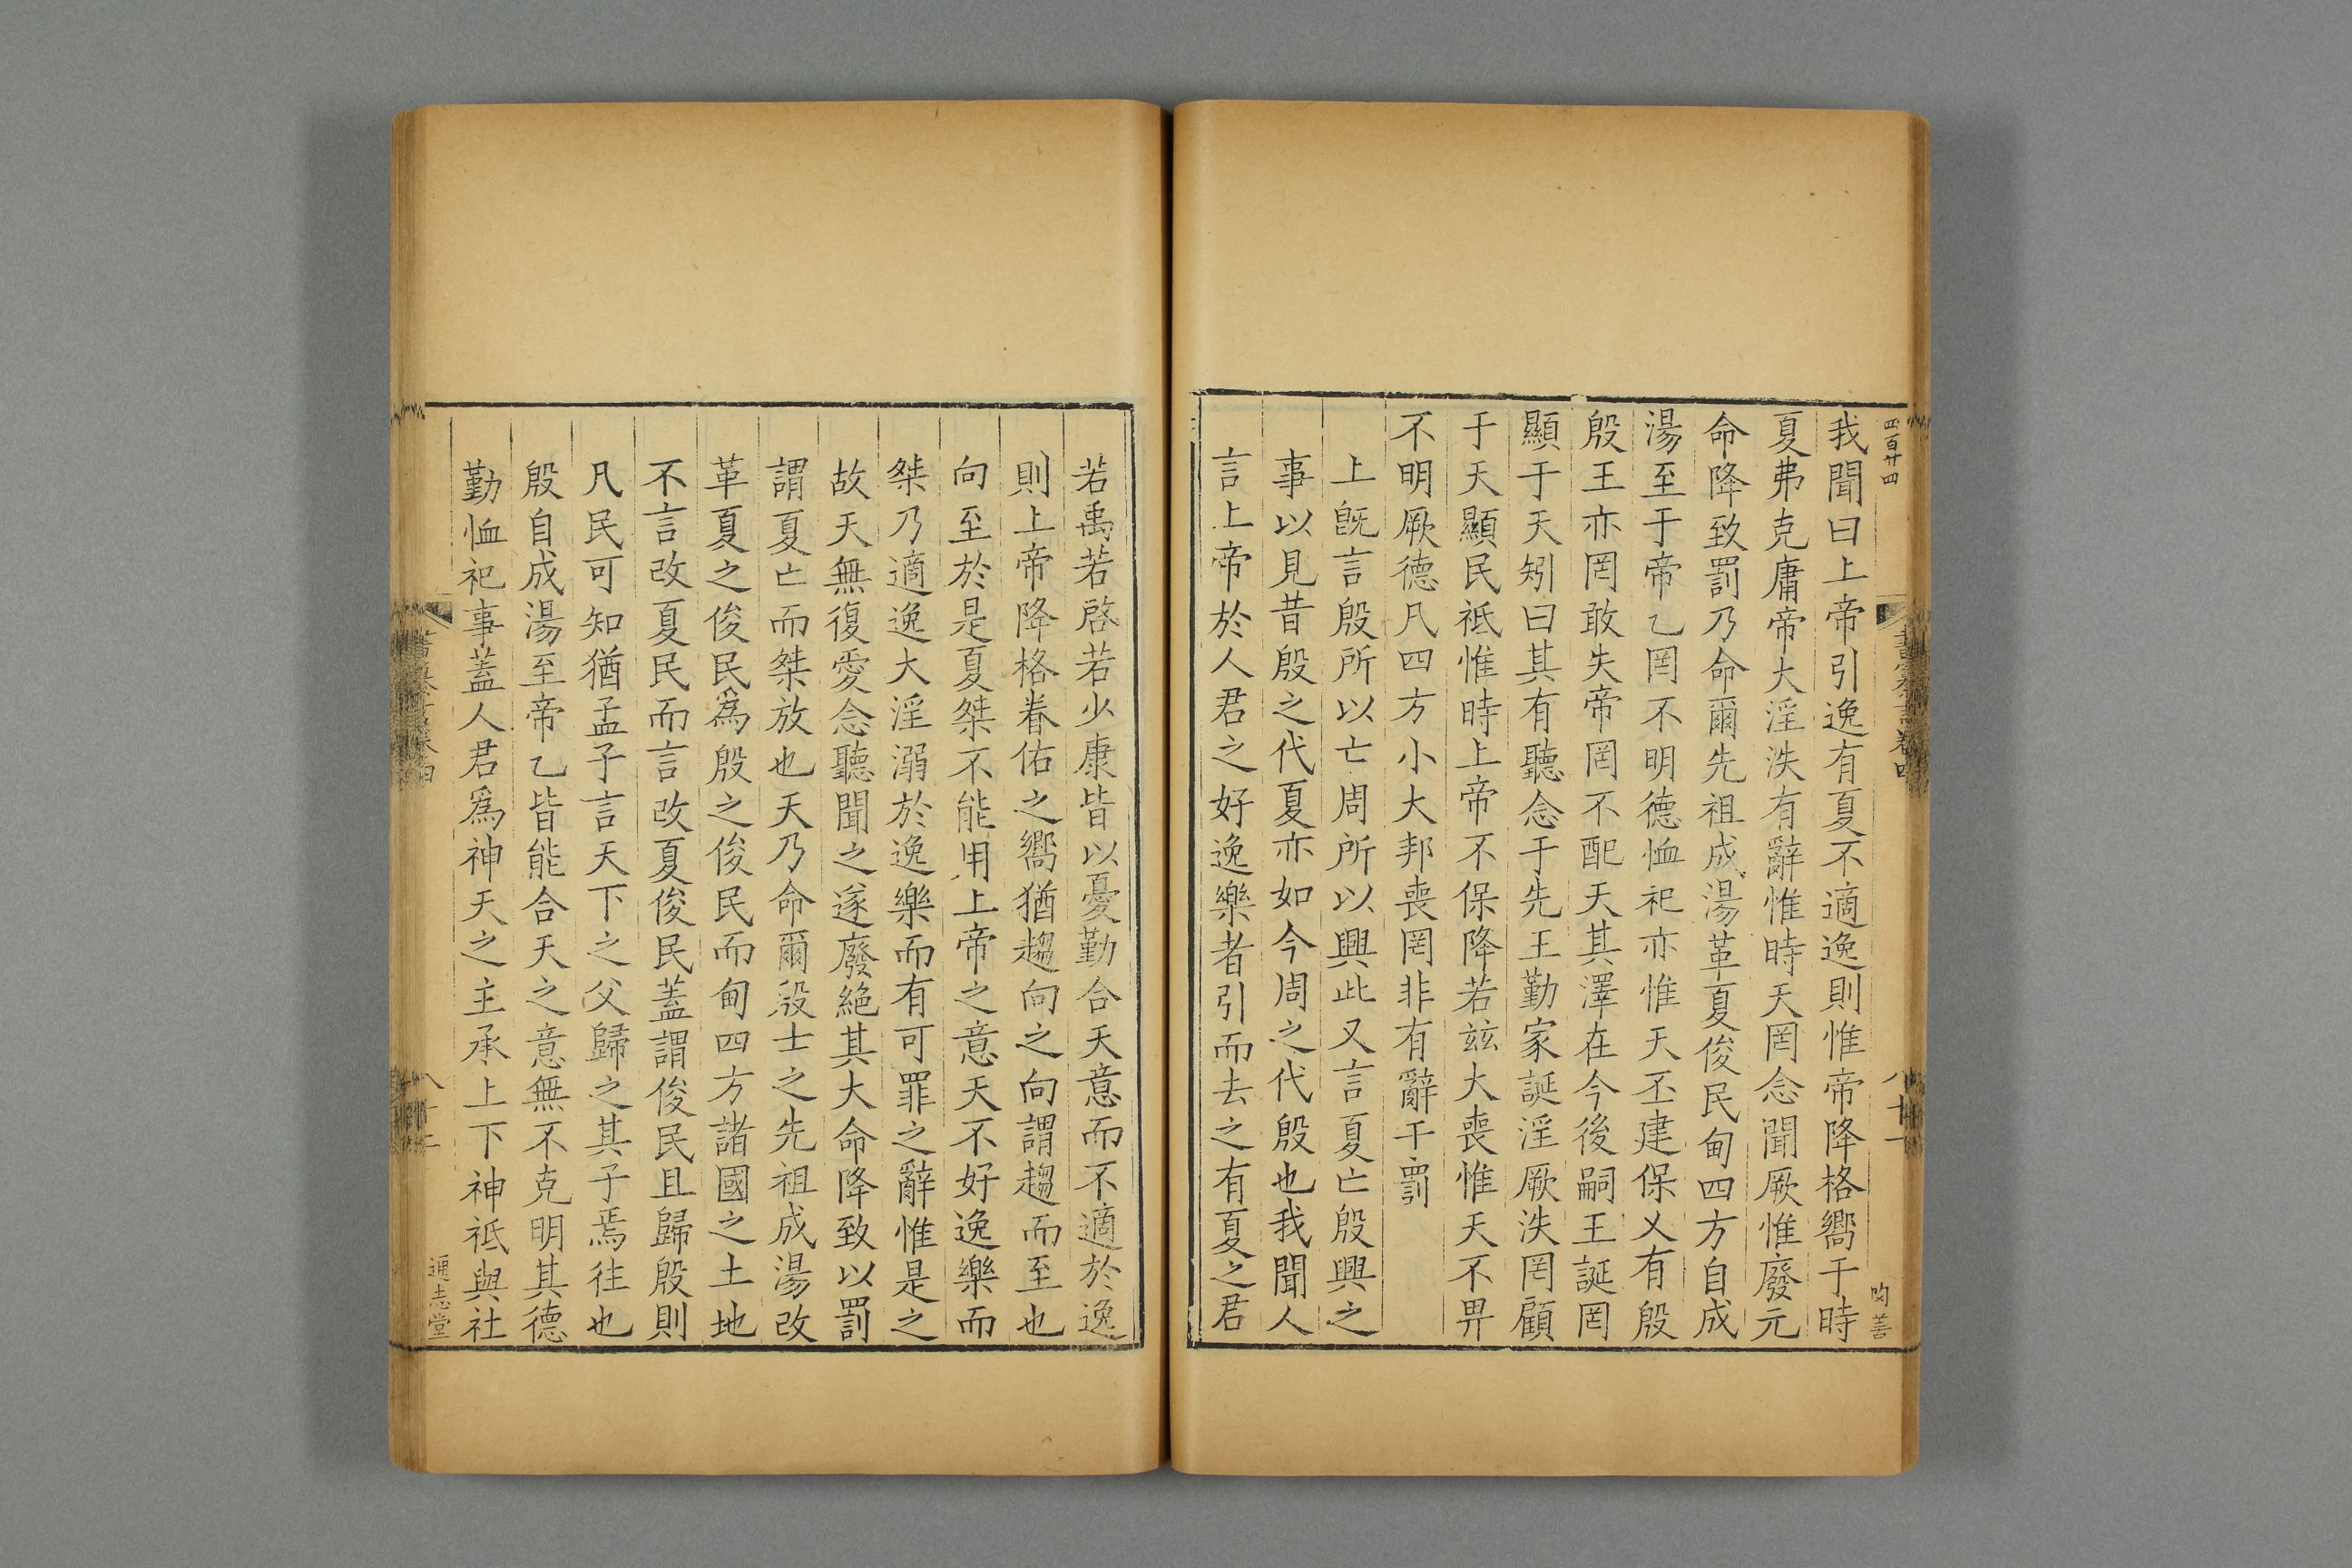 四百廿四
我聞曰上帝引逸有夏不適逸則惟帝降格嚮于時
夏弗克庸帝大淫泆有辭惟時天罔念聞厥惟廢元
命降致罰乃命爾先祖成湯革夏俊民甸四方自成
湯至于帝乙罔不明德恤祀亦惟天丕建保乂有殷
殷王亦罔敢失帝罔不配天其澤在今後嗣王誕罔
顯于天矧曰其有聽念于先王勤家誕淫厥泆罔顧
于天顯民祗惟時上帝不保降若玆大喪惟天不畀
不明厥德凡四方小大邦喪罔非有辭于罰
上旣言殷所以亡周所以興此又言夏亡殷興之
事以見昔殷之代夏亦如今周之代殷也我聞人
言上帝於人君之好逸樂者引而去之有夏之君
若禹若啓若少康皆以憂勤合天意而不適於逸
則上帝降格眷佑之嚮猶趨向之向謂趨而至也
向至於是夏桀不能用上帝之意天不好逸樂而
桀乃適逸大淫溺於逸樂而有可罪之辭惟是之
故天無復愛念聽聞之遂廢絕其大命降致以罰
謂夏亡而桀放也天乃命爾殷士之先祖成湯改
革夏之俊民爲殷之俊民而甸四方諸國之土地
不言改夏民而言改夏俊民蓋謂俊民且歸殷則
凡民可知猶孟子言天下之父歸之其子焉往也
殷自成湯至帝乙皆能合天之意無不克明其德
勤恤祀事蓋人君爲神天之主承上下神祇與社
通志堂